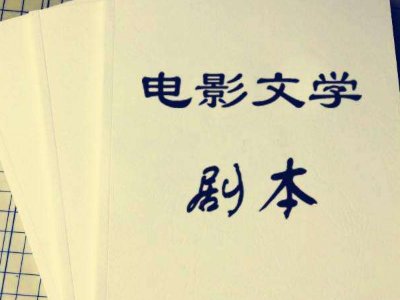 电影文学
剧本